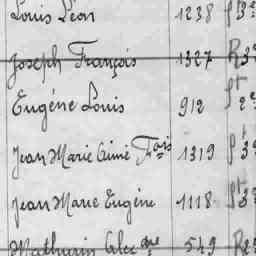 Louis Léon 1238 St 3e
Joseph François 1327 R 3e
Eugéne Louis 912 St 2e
Jean Marie Aimé Fois 1319 St 3e
Jean Marie Eugéne 1118 St 3e
Mathurin Alexdre 549 R 2e